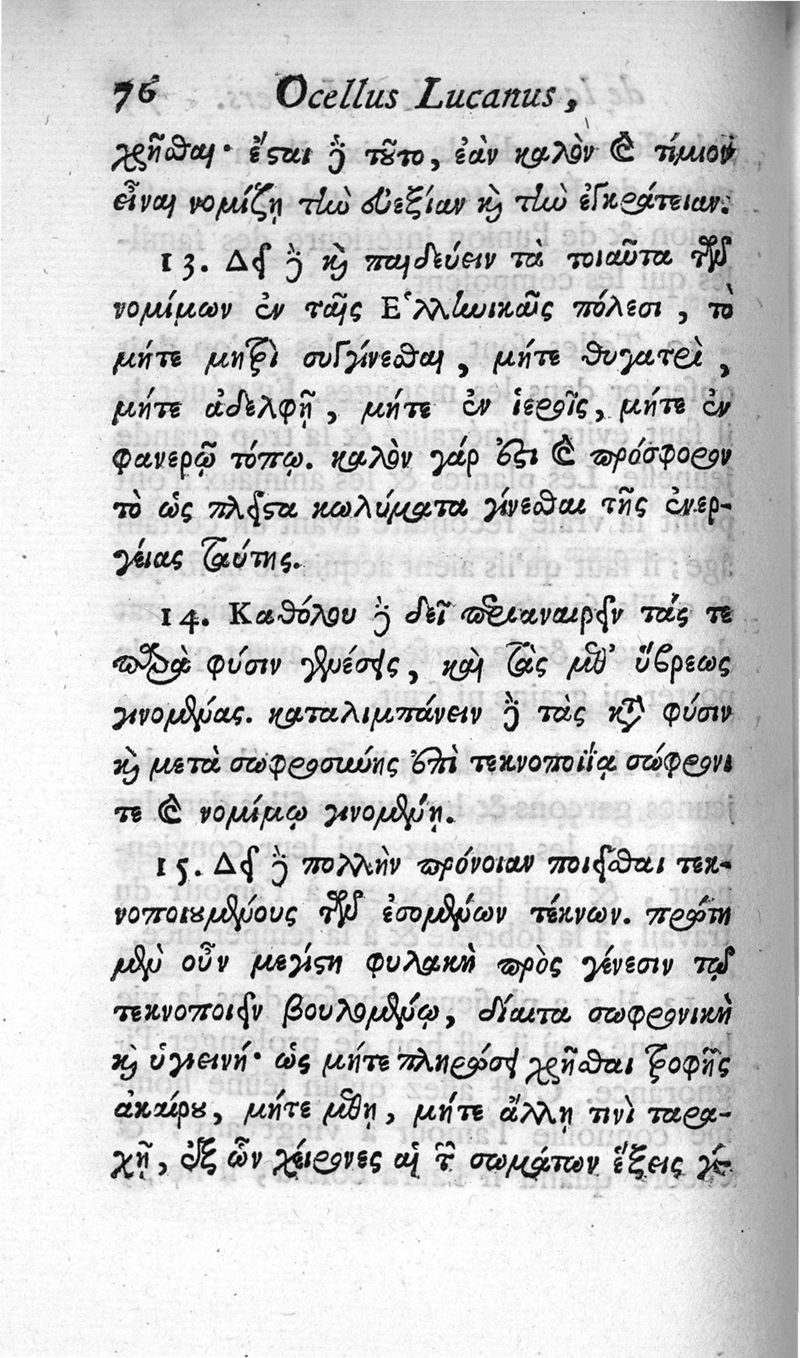 76 Ocellus Lucanus,
χρῆσθαι· ἔσται δὲ τοῦτο, ἐὰν καλὸν καὶ τίμιον
εἶναι νομίζῃ τὴν εὐεξίαν καὶ τὴν ἐγκράτειαν.
13. Δεῖ δὲ καὶ παιδεύειν τὰ τοιαῦτα τῶν
νομίμων ἐν ταῖς Ἑλληνικαῖς πόλεσι, τὸ
μήτε μητρὶ συγγίνεσθαι, μήτε θυγατρὶ,
μήτε ἀδελφῇ, μήτε ἐν ἱεροῖς, μήτε ἐν
φανερῷ τόπῳ. καλὸν γάρ ἐστι καὶ πρόσφορον
τὸ ὡς πλεῖστα κωλύματα γίνεσθαι τῆς ἐνερ-
γείας ταύτης.
14. Καθόλου δὲ δεῖ περιαναιρεῖν τάς τε
παρὰ φύσιν γενέσεις, καὶ τὰς μεθ' ὕβρεως
γινομένας. καταλιμπάνειν δὲ τὰς κατὰ φύσιν
καὶ μετὰ σωφροσύνης ἐπὶ τεκνοποιΐᾳ σώφρονι
τε καὶ νομίμῳ γινομένῃ.
15. Δεῖ δὲ πολλὴν πρόνοιαν ποιεῖσθαι τεκ-
νοποιουμένους τῶν ἐσομένων τέκνων. πρώτη
μὲν οὖν μεγίστη φυλακὴ πρὸς γένεσιν τῷ
τεκνοποιεῖν βουλομένῳ, δίαιτα σωφρονικὴ
καὶ ὑγιεινή· ὡς μήτε πληρώσει χρῆσθαι τροφῆς
ἀκαίρου, μήτε μέθῃ, μήτε ἄλλῃ τινὶ ταρα-
χῇ, ἐξ ὧν χείρονες αἱ τῶν σωμάτων ἕξεις γί-